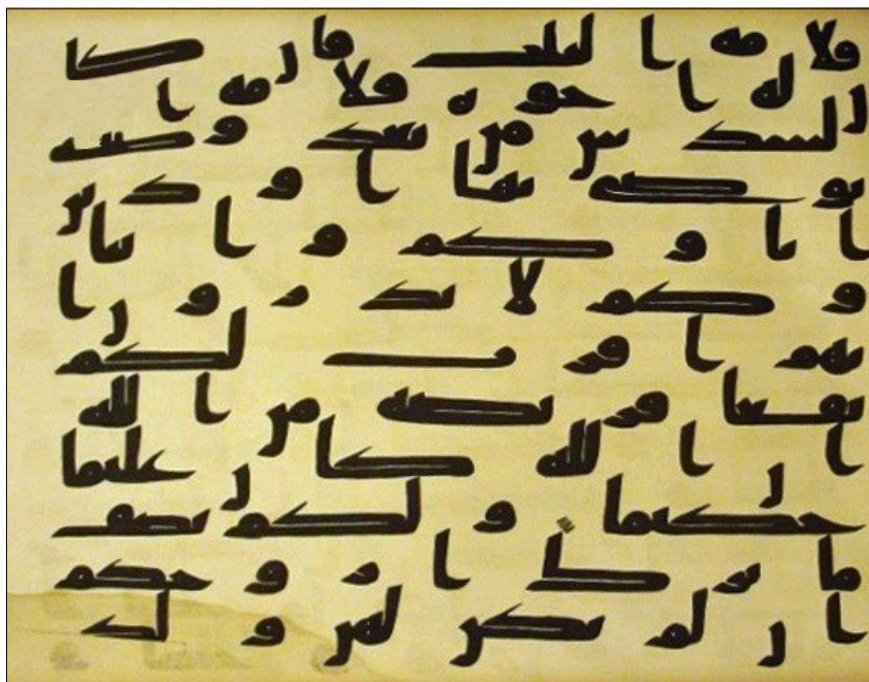 فلامه الثلث فان كا
ن له اخوه فلامه ا
لسدس من بعد وصيه
يوصى بها او دين
اباوكم وابنا
وكم لا تدرون ا
يهم اقرب لكم
نفعا فريضه من الله
ان الله كان عليما
حكيما ولكم نصف
ما ترك ازوجكم
ان لم يكن لهن ولد